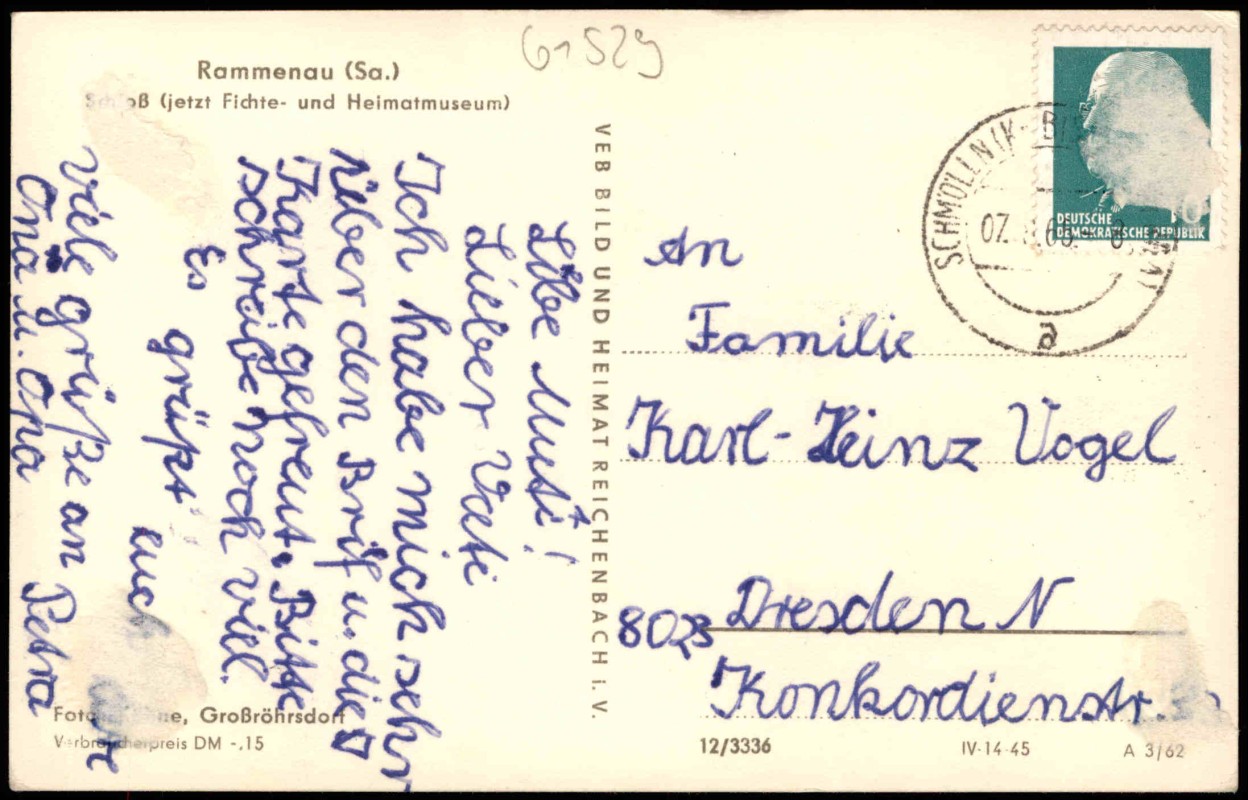 G1529
Rammenau (Sa.)
Schloß (jetzt Fichte- und Heimatmuseum)
Liebe Mutti!
Lieber Vati
Ich habe mich sehr
über den Brif u. die
Karte gefreut. Bitte
schreibe noch viel.
Es
grüßt
euch
Viele grüße an
Oma u. Opa Petra
Großröhrsdorf
Verbraucherpreis DM -.15
VEB BILD UND HEIMAT REICHENBACH i. V.
DEUTSCHE
DEMOKRATISCHE REPUBLIK
SCHMÖLLN
07.
a
An
Familie
Karl-Heinz Vogel
8023 Dresden N
Konkordienstr.
12/3336 IV-14-45 A 3/62